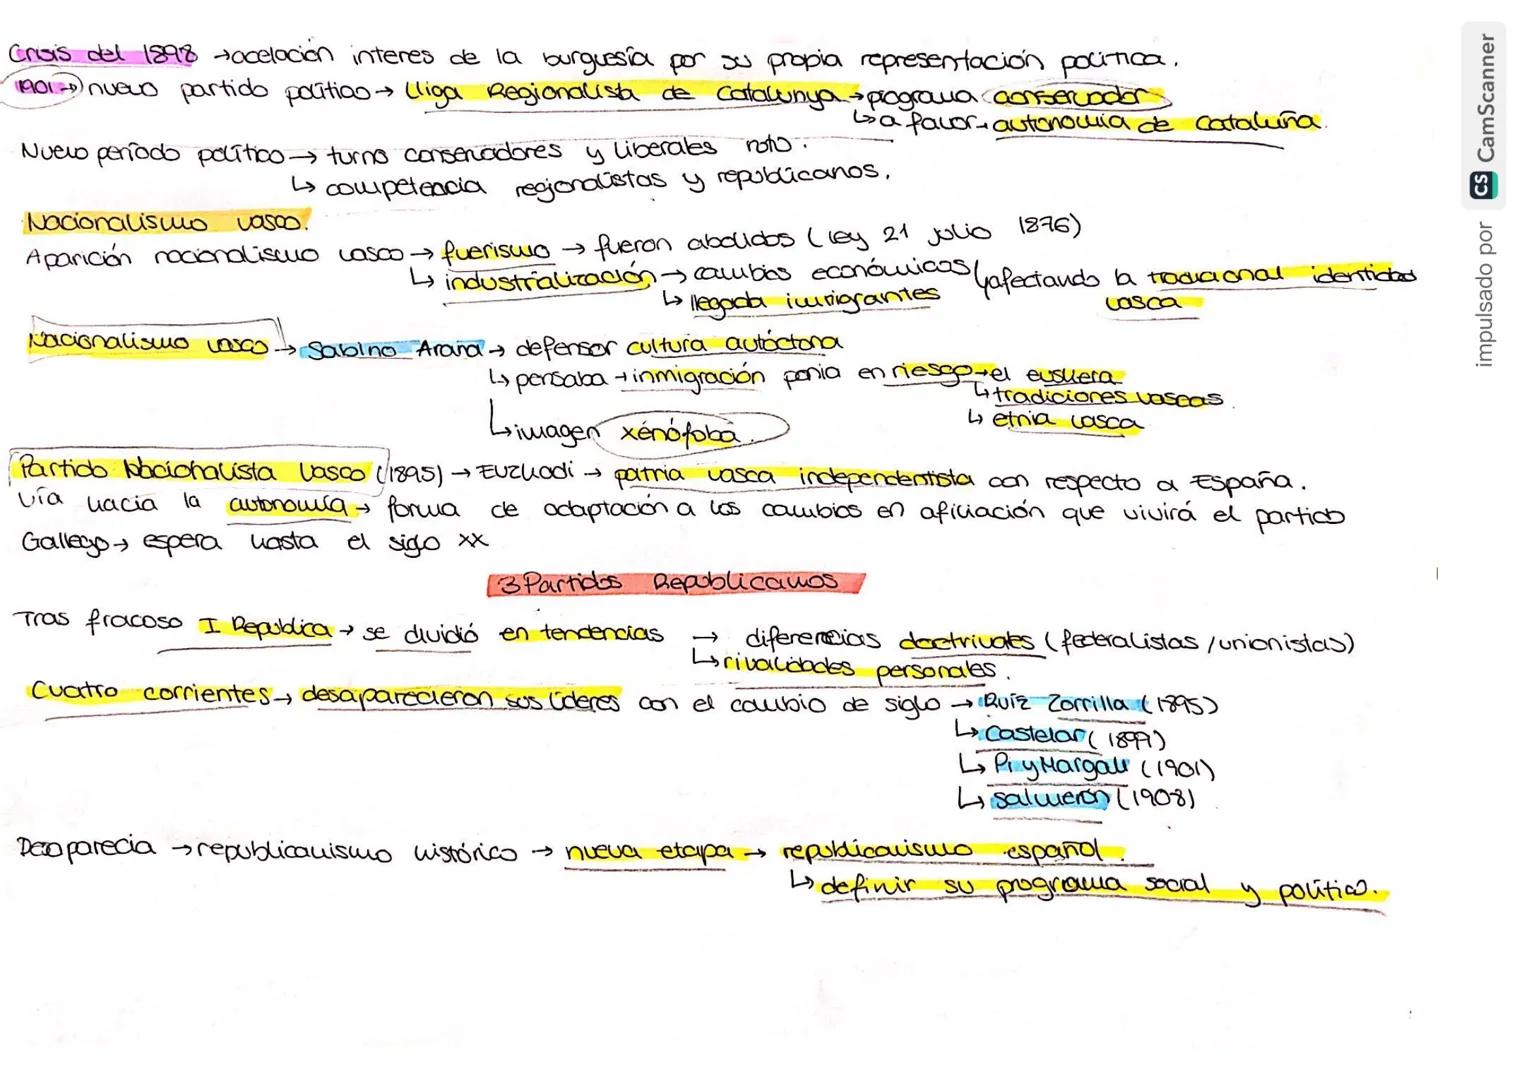 Crisis del 1898 → acelación interes de la burguesía por su propia representación política.
1901 → nuevo partido político → Lliga Regionalista de Catalunya → programa conservador
↳ a favor → autonomía de Cataluña.
Nuevo período político → turno conservadores y liberales roto.
↳ competencia regionalistas y republicanos.
Nacionalismo vasco.
Aparición nacionalismo vasco → fuerismo → fueron abolidos (ley 21 julio 1876)
↳ industrialización → cambios económicos ↳ afectando la tradicional identidad
↳ llegada inmigrantes vasca
Nacionalismo vasco → Sabino Arana → defensor cultura autóctona
↳ pensaba → inmigración ponia en riesgo → el euskera
↳ tradiciones vascas.
↳ imagen xénófoba. ↳ etnia vasca
Partido Nacionalista Vasco (1895) → Euzkadi → patria vasca independentista con respecto a España.
Vía hacia la autonomía → forma de adaptación a los cambios en afiliación que vivirá el partido
Gallego → espera hasta el siglo XX
3 Partidos Republicanos
Tras fracaso I Republica → se dividió en tendencias → diferencias doctrinales (federalistas / unionistas)
↳ rivalidades personales.
Cuatro corrientes → desaparecieron sus líderes con el cambio de siglo → Ruíz Zorrilla (1895)
↳ Castelar (1899)
↳ Pi y Margall (1901)
↳ Salmerón (1908)
Desaparecia → republicanismo histórico → nueva etapa → republicanismo español.
↳ definir su programa social y político.
impulsado por CS CamScanner